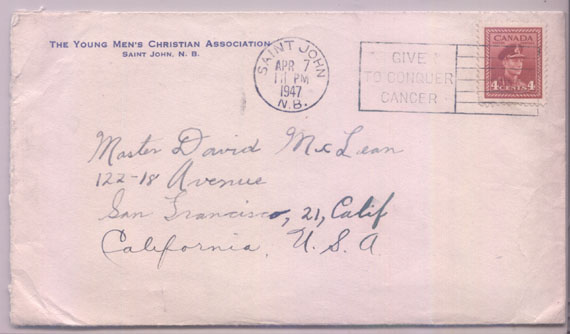 THE YOUNG MEN'S CHRISTIAN ASSOCIATION
SAINT JOHN, N. B.
SAINT JOHN
APR 7
11 PM
1947
N.B.
GIVE
TO CONQUER
CANCER
CANADA
4 CENTS 4
Master David McLean
122-18 Avenue
San Francisco, 21, Calif
California, U. S. A.